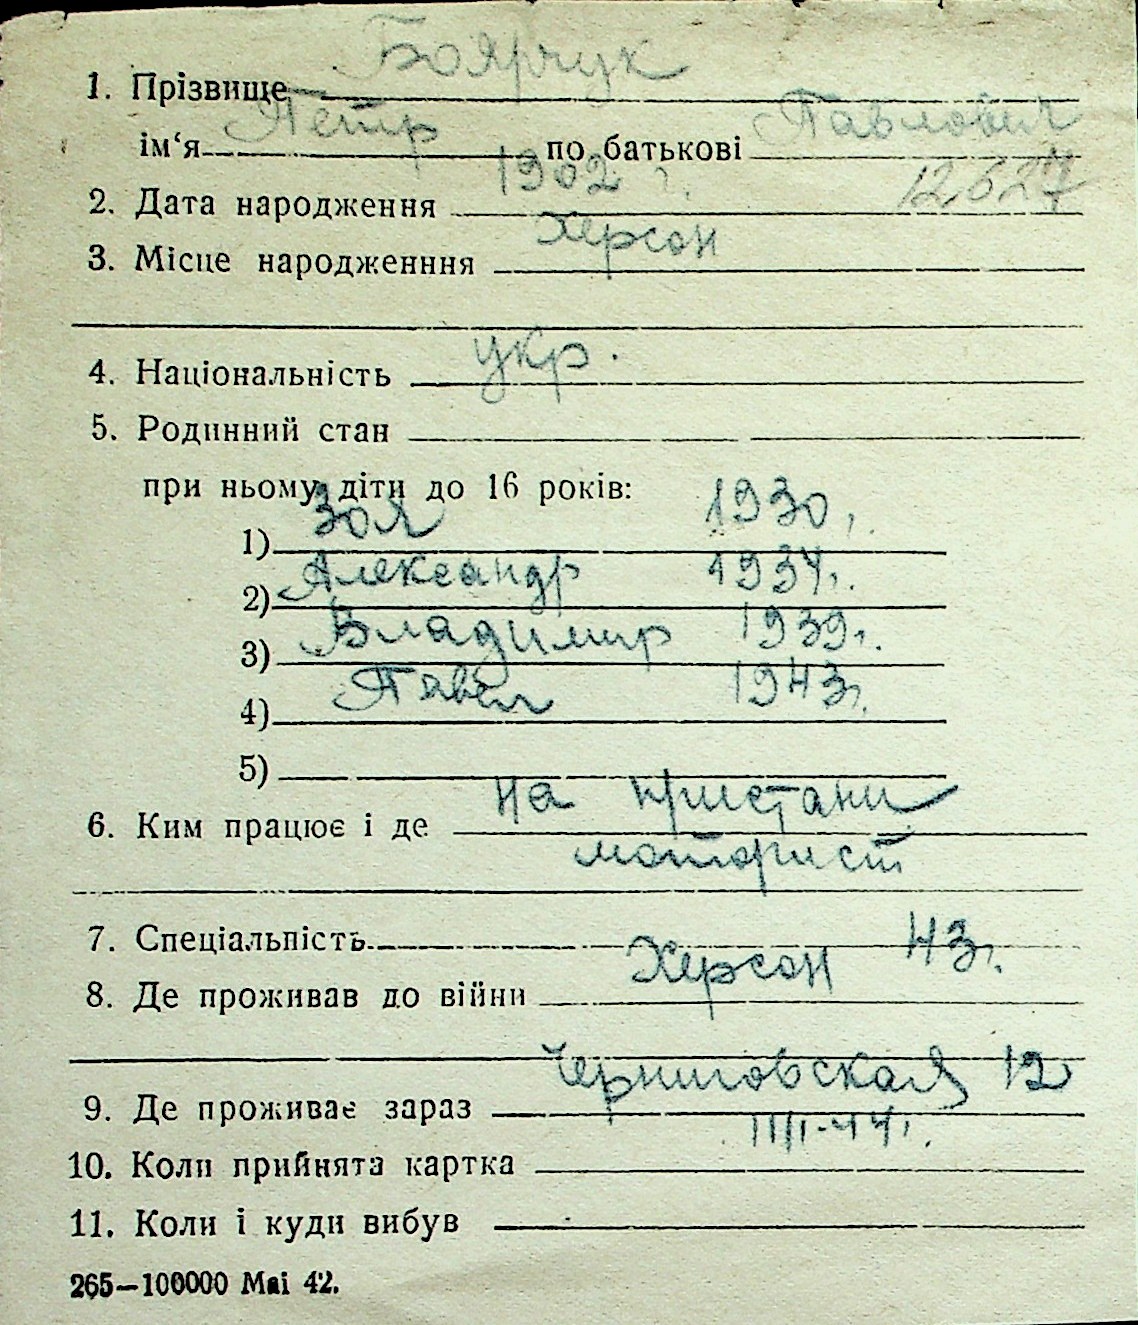 Боярчук
1. Прізвище
Петр Павлович
ім‘я по батькові
1902 г. 12627
2. Дата народження
Херсон
3. Місце народженння
укр.
4. Національність
5. Родинний стан
при ньому діти до 16 років:
1) Зоя 1930г.
2) Александр 1937г.
3) Владимир 1939г.
4) Павел 1943г.
5)
На пристани
6. Ким працює і де
моторист
7. Спеціальність 43г.
Херсон
8. Де проживав до війни
Черниговская 12
9. Де проживає зараз
10. Коли прийнята картка
11. Коли і куди вибув
265—100000 Mai 42.